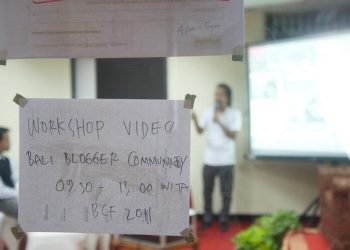 4pm - 5pm
WORKSHOP VIDEO
BALI BLOGGER COMMUNITY
09.30 - 13.00 WITA
BCF 2011